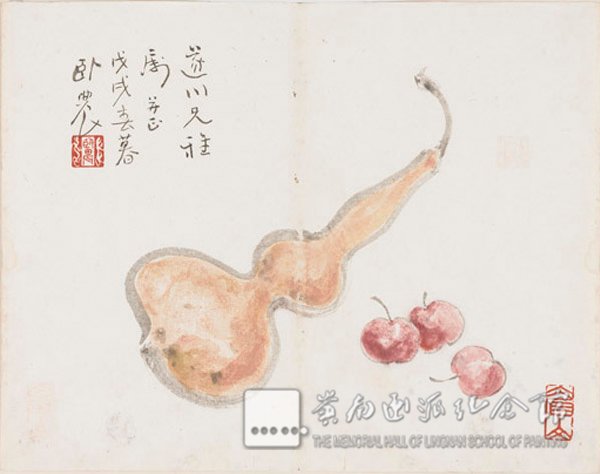 遂川兄雅
属并正
戊戌春暮
卧农
岭南画派纪念馆
THE MEMORIAL HALL OF LINGNAN SCHOOL OF PAINTING